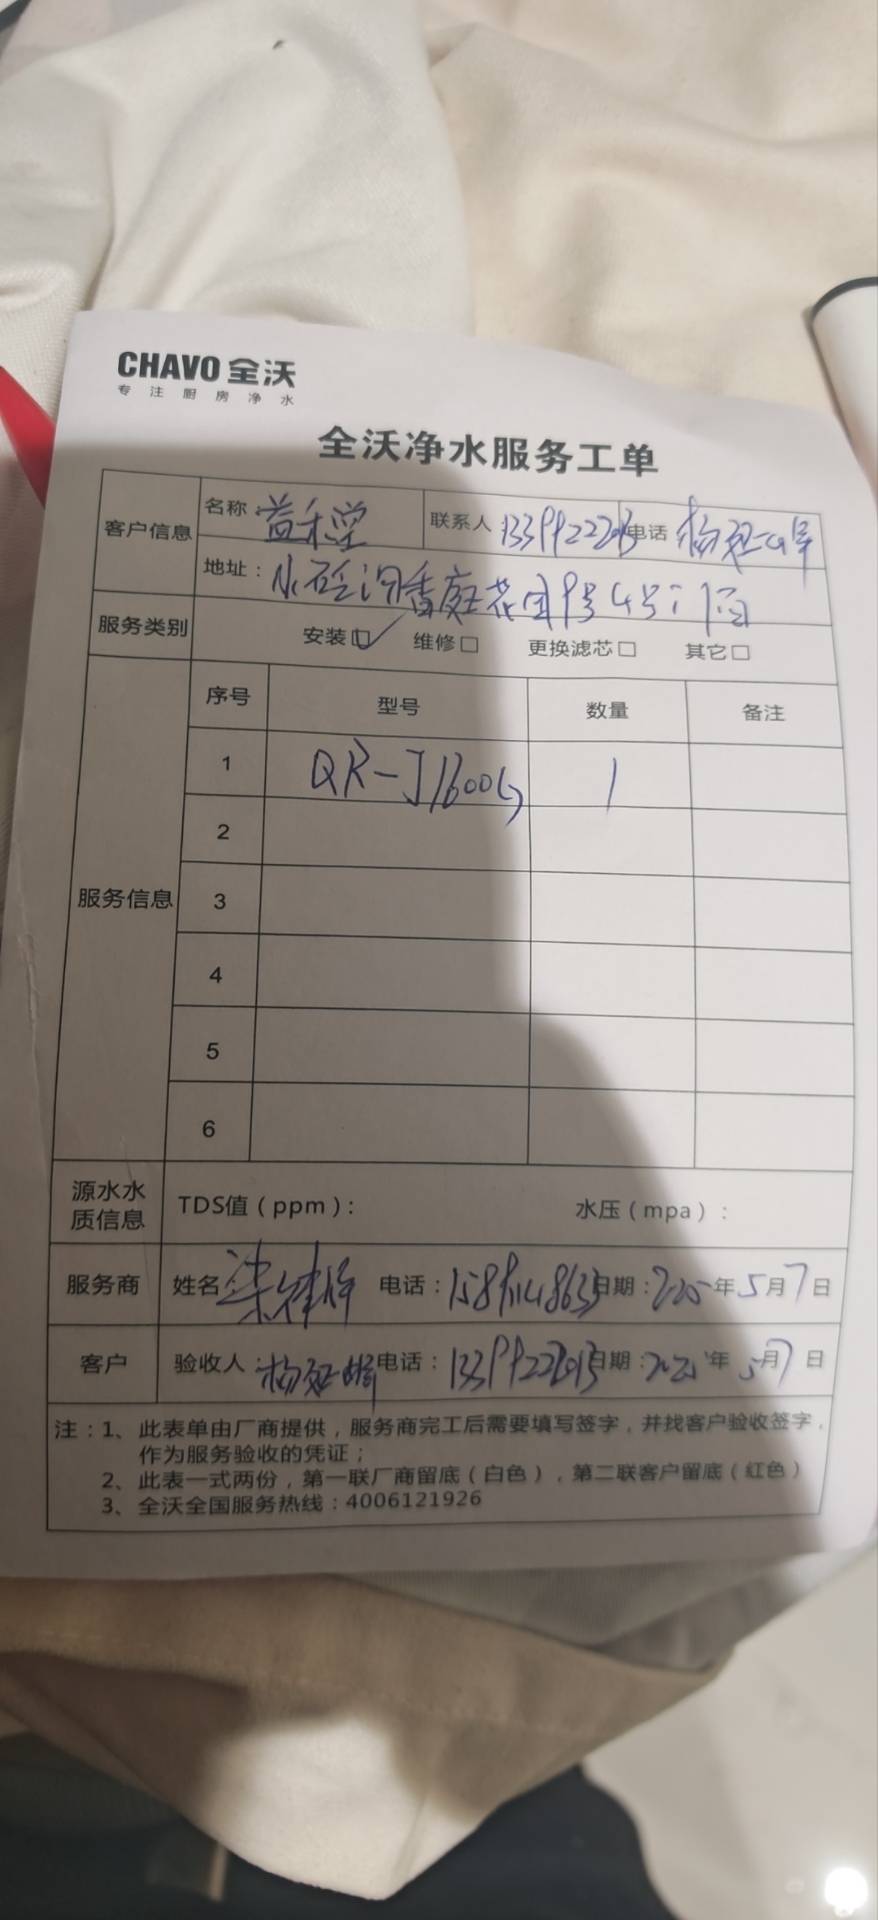 CHAVO 全沃
专注厨房净水
全沃净水服务工单
客户信息
名称：益禾堂 联系人 电话
地址：香庭花园
服务类别 安装☑ 维修□ 更换滤芯□ 其它□
服务信息
序号 型号 数量 备注
1 QR-J1600G 1
2
3
4
5
6
源水水质信息 TDS值（ppm）： 水压（mpa）：
服务商 姓名 电话： 日期：2025年5月7日
客户 验收人： 电话： 日期：2025年5月7日
注：1、此表单由厂商提供，服务商完工后需要填写签字，并找客户验收签字，
作为服务验收的凭证；
2、此表一式两份，第一联厂商留底（白色），第二联客户留底（红色）
3、全沃全国服务热线：4006121926